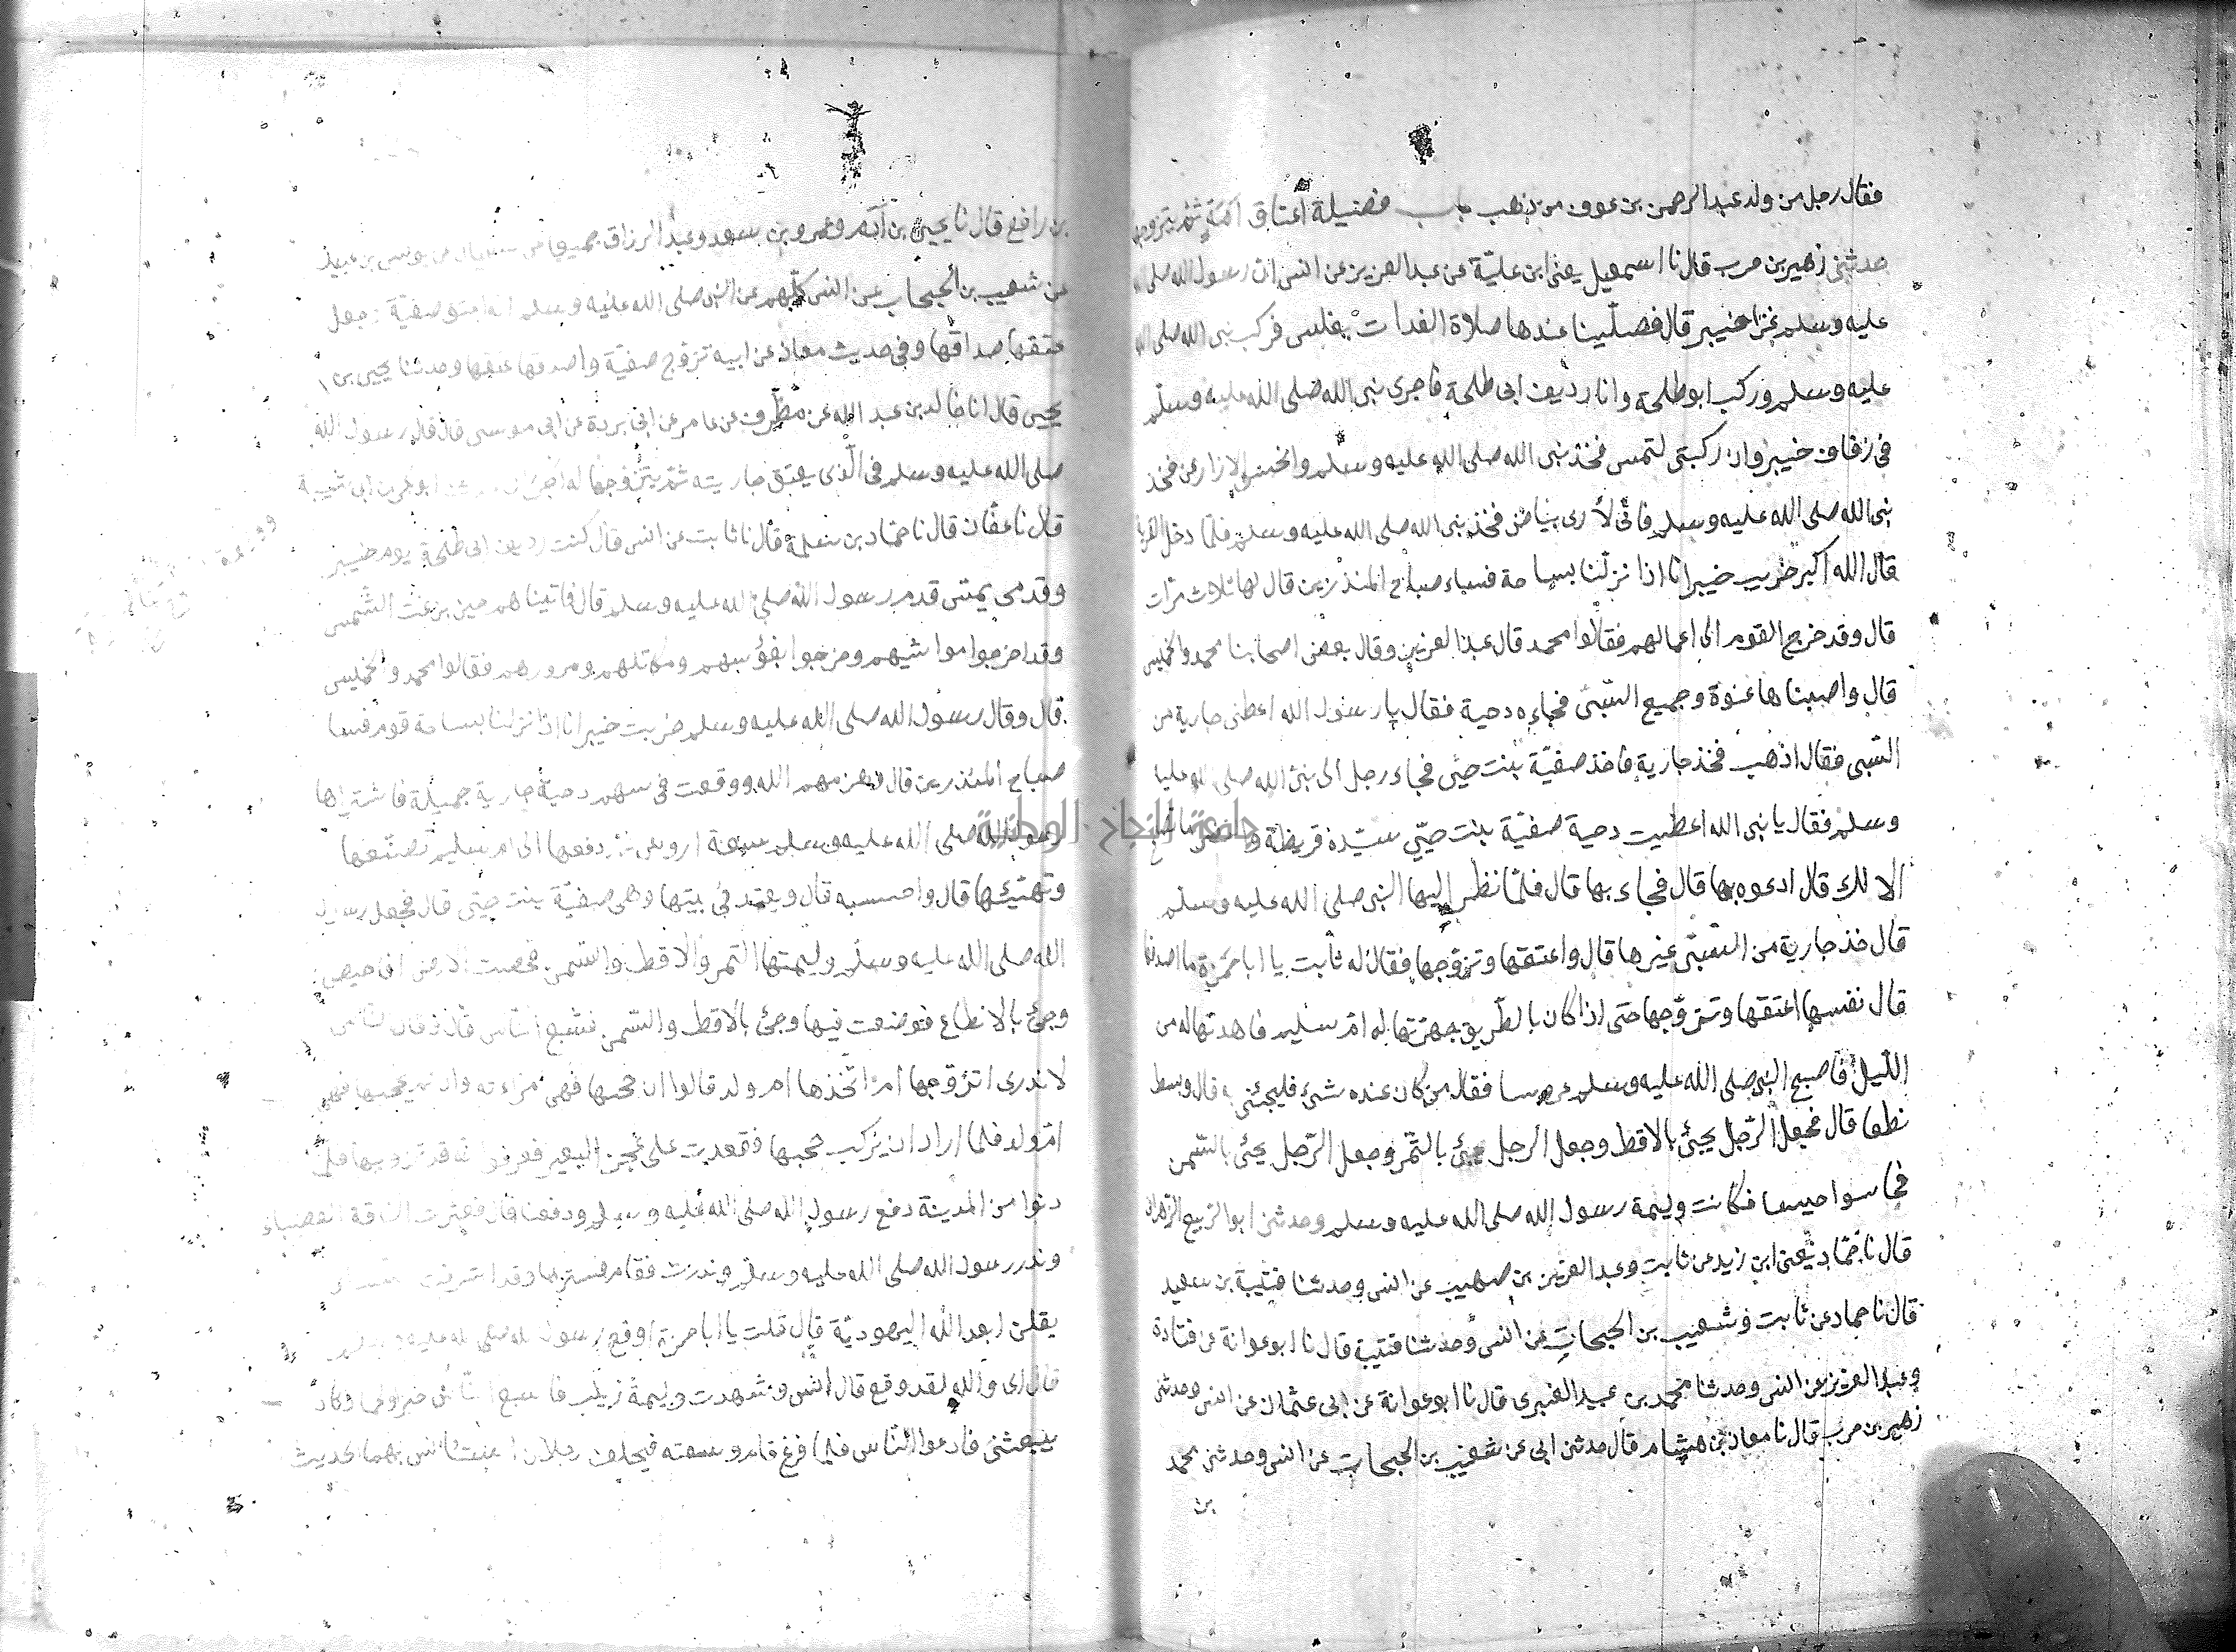 فقال رجل من ولد عبد الرحمن بن عوف من ذهب باب فضيلة اعتاق امة ثم يتزوجها
حدثنى زهير بن حرب قال نا اسمعيل يعنى ابن علية عن عبد العزيز عن انس ان رسول الله صلى الله
عليه وسلم غزا خيبر قال فصلينا عندها صلاة الغدات بغلس فركب نبى الله صلى الله
عليه وسلم وركب ابو طلحة وانا رديف ابى طلحة فاجرى نبى الله صلى الله عليه وسلم
فى زقاق خيبر وان ركبتى لتمس فخذ نبى الله صلى الله عليه وسلم وانحسر الازار عن فخذ
نبى الله صلى الله عليه وسلم فانى لأرى بياض فخذ نبى الله صلى الله عليه وسلم فلما دخل القرية
قال الله اكبر خربت خيبر انا اذا نزلنا بساحة فساء صباح المنذرين قال لها ثلاث مرات
قال وقد خرج القوم الى اعمالهم فقالوا محمد قال عبد العزيز وقال بعض اصحابنا محمد والخميس
قال واصبناها عنوة وجميع السبى فجاءه دحية فقال يا رسول الله اعطنى جارية من
السبى فقال اذهب فخذ جارية فاخذ صفية بنت حيى فجاء رجل الى نبى الله صلى الله عليه
وسلم فقال يا نبى الله اعطيت دحية صفية بنت حيي سيدة قريظة والنضير ما تصلح
الا لك قال ادعوه بها قال فجاء بها قال فلما نظر اليها النبى صلى الله عليه وسلم
قال خذ جارية من السبى غيرها قال واعتقها وتزوجها فقال له ثابت يا ابا حمزة ما اصدقها
قال نفسها اعتقها وتزوجها حتى اذا كان بالطريق جهزتها له ام سليم فاهدتها له من
الليل فاصبح النبى صلى الله عليه وسلم عروسا فقال من كان عنده شىء فليجئنى به قال وبسط
نطعا قال فجعل الرجل يجئ بالاقط وجعل الرجل يجئ بالتمر وجعل الرجل يجئ بالسمن
فحاسوا حيسا فكانت وليمة رسول الله صلى الله عليه وسلم وحدثنى ابو الربيع الزهرانى
قال نا حماد يعنى ابن زيد عن ثابت وعبد العزيز بن صهيب عن انس وحدثنا قتيبة بن سعيد
قال نا حماد عن ثابت وشعيب بن الحبحاب عن انس وحدثنا قتيبة قال نا ابو عوانة عن قتادة
وعبد العزيز عن انس وحدثنا محمد بن عبيد الغبرى قال نا ابو عوانة عن ابى عثمان عن انس وحدثنى
زهير بن حرب قال نا معاذ بن هشام قال حدثنى ابى عن شعيب بن الحبحاب عن انس وحدثنى محمد
بن
بن رافع قال نا يحيى بن آدم وعمرو بن سعد وعبد الرزاق جميعا عن سفيان عن يونس بن عبيد
عن شعيب بن الحبحاب عن انس كلهم عن النبى صلى الله عليه وسلم انه اعتق صفية وجعل
عتقها صداقها وفى حديث معاذ عن ابيه تزوج صفية واصدقها عتقها وحدثنا يحيى بن
يحيى قال انا خالد بن عبد الله عن مطرف عن عامر عن ابى بردة عن ابى موسى قال قال رسول الله
صلى الله عليه وسلم فى الذى يعتق جاريته ثم يتزوجها له اجران ابو بكر بن ابى شيبة
قال نا عفان قال نا حماد بن سلمة قال نا ثابت عن انس قال كنت رديف ابى طلحة يوم خيبر
وقدمى تمس قدم رسول الله صلى الله عليه وسلم قال فاتيناهم حين بزغت الشمس
وقد اخرجوا مواشيهم وخرجوا بفؤسهم ومكاتلهم ومرورهم فقالوا محمد والخميس
قال وقال رسول الله صلى الله عليه وسلم خربت خيبر انا اذا نزلنا بساحة قوم فساء
صباح المنذرين قال فهزمهم الله ووقعت فى سهم دحية جارية جميلة فاشتراها
رسول الله صلى الله عليه وسلم بسبعة ارؤس ثم دفعها الى ام سليم تصنعها
وتهيئها قال واحسبه قال وتعتد فى بيتها وهى صفية بنت حيى قال فجعل رسول
الله صلى الله عليه وسلم وليمتها التمر والاقط والسمن فحصت الارض افاحيص
وجئ بالانطاع فوضعت فيها وجئ بالاقط والسمن فشبع الناس قال وقال الناس
لا ندرى اتزوجها ام اتخذها ام ولد قالوا ان حجبها فهى امرءته وان لم يحجبها فهى
ام ولد فلما اراد ان يركب حجبها فقعدت على عجز البعير فعرفوا انه قد تزوجها فلما
دنوا من المدينة دفع رسول الله صلى الله عليه وسلم ودفعنا قال فعثرت الناقة العضباء
وندر رسول الله صلى الله عليه وسلم وندرت فقام فسترها وقد اشرفت
يقلن ابعد الله اليهودية قال قلت يا ابا حمزة اوقع رسول الله صلى الله عليه وسلم
قال اى والله لقد وقع قال انس وشهدت وليمة زينب فاشبع الناس خبزا ولحما وكان
يبعثنى فادعوا الناس فلما فرغ قام وتبعته فيخلف رجلان بهما الحديث
جامعة النجاح الوطنية